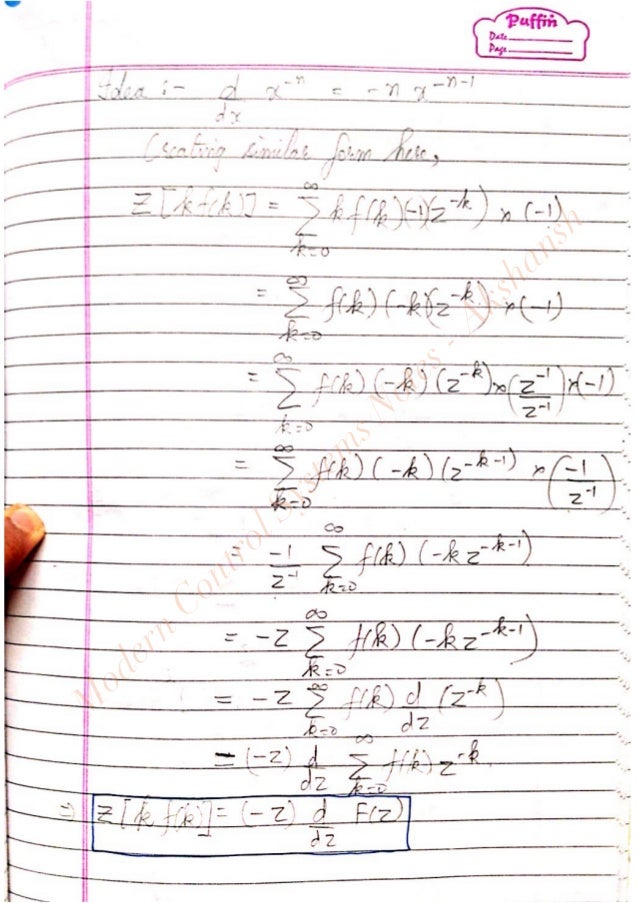 Puffin
Date
Page
Idea :- d/dx x^{-n} = -n x^{-n-1}
Creating similar form here,
Z[k f(k)] = ∑_{k=0}^{∞} k f(k)(-1)(z^{-k}) × (-1)
= ∑_{k=0}^{∞} f(k) (-k)(z^{-k}) × (-1)
= ∑_{k=0}^{∞} f(k) (-k) (z^{-k}) × (z^{-1}/z^{-1}) × (-1)
= ∑_{k=0}^{∞} f(k) (-k) (z^{-k-1}) × (-1/z^{-1})
= -1/z^{-1} ∑_{k=0}^{∞} f(k) (-k z^{-k-1})
= -z ∑_{k=0}^{∞} f(k) (-k z^{-k-1})
= -z ∑_{k=0}^{∞} f(k) d/dz (z^{-k})
= (-z) d/dz ∑_{k=0}^{∞} f(k) z^{-k}
⇒ Z[k f(k)] = (-z) d/dz F(z)
Modern Control Systems Notes - Akshansh